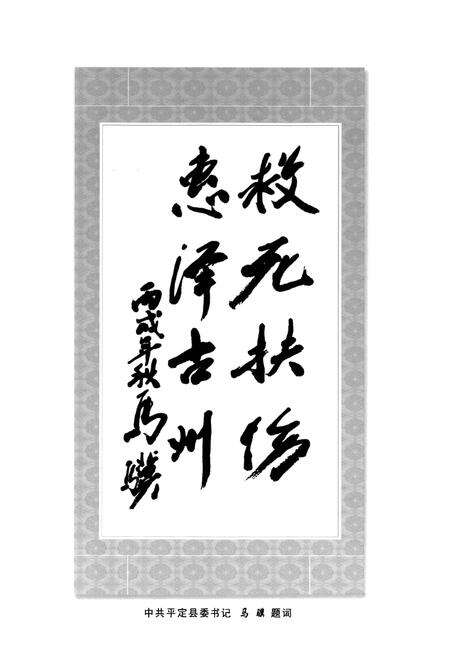 救死扶伤
惠泽古州
丙戌年秋马骥
中共平定县委书记 马骥 题词